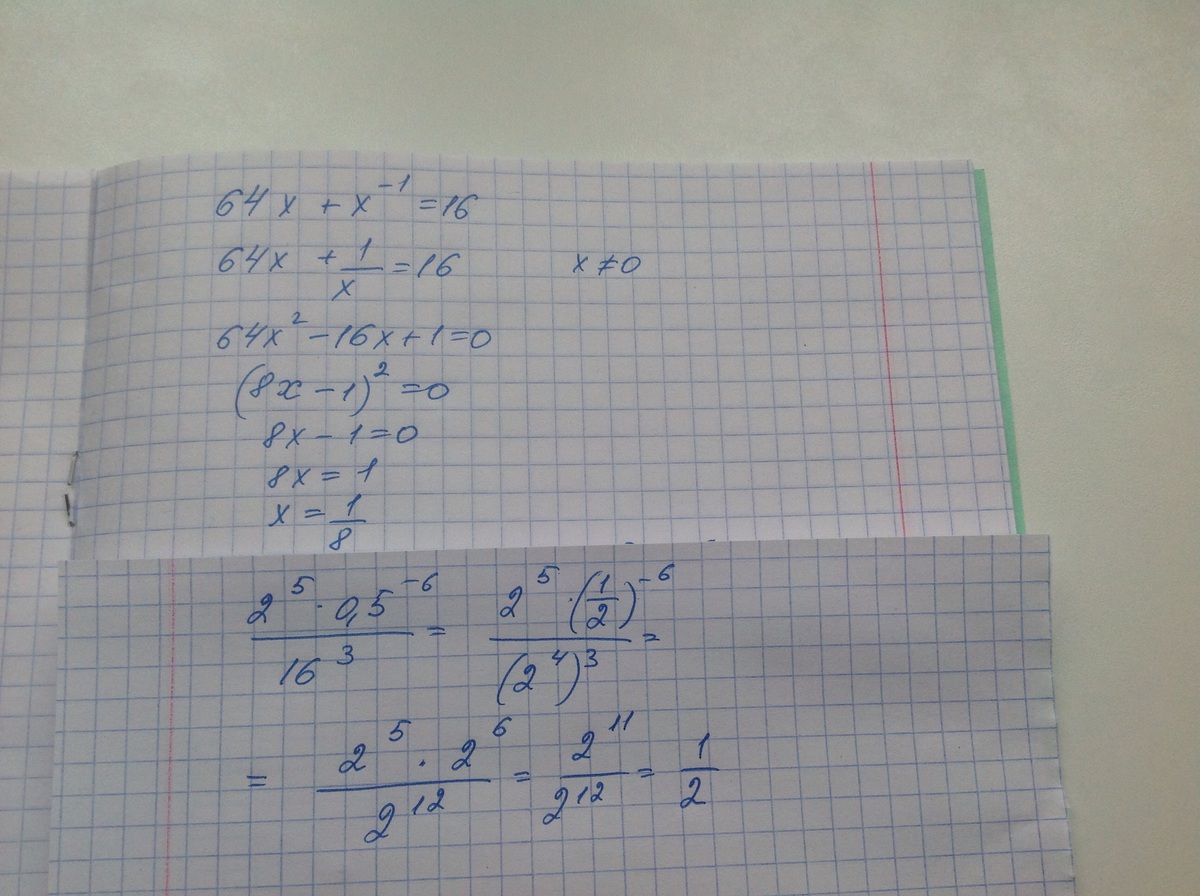 64x + x⁻¹ = 16
64x + 1/x = 16 x ≠ 0
64x² - 16x + 1 = 0
(8x - 1)² = 0
8x - 1 = 0
8x = 1
x = 1/8
2⁵ · 0,5⁻⁶ / 16³ = 2⁵ · (1/2)⁻⁶ / (2⁴)³ =
= 2⁵ · 2⁶ / 2¹² = 2¹¹ / 2¹² = 1/2